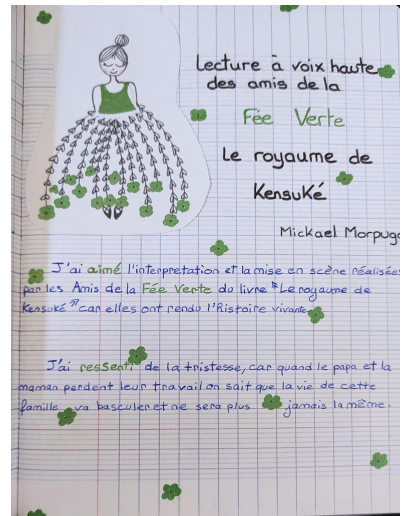 Lecture à voix haute
des amis de la
Fée Verte
Le royaume de
Kensuké
Mickael Morpugo
J'ai aimé l'interpretation et la mise en scène réalisées
par les Amis de la Fée Verte du livre "Le royaume de
Kensuké" car elles ont rendu l'histoire vivante.
J'ai ressenti de la tristesse, car quand le papa et la
maman perdent leur travail on sait que la vie de cette
famille va basculer et ne sera plus jamais la même.